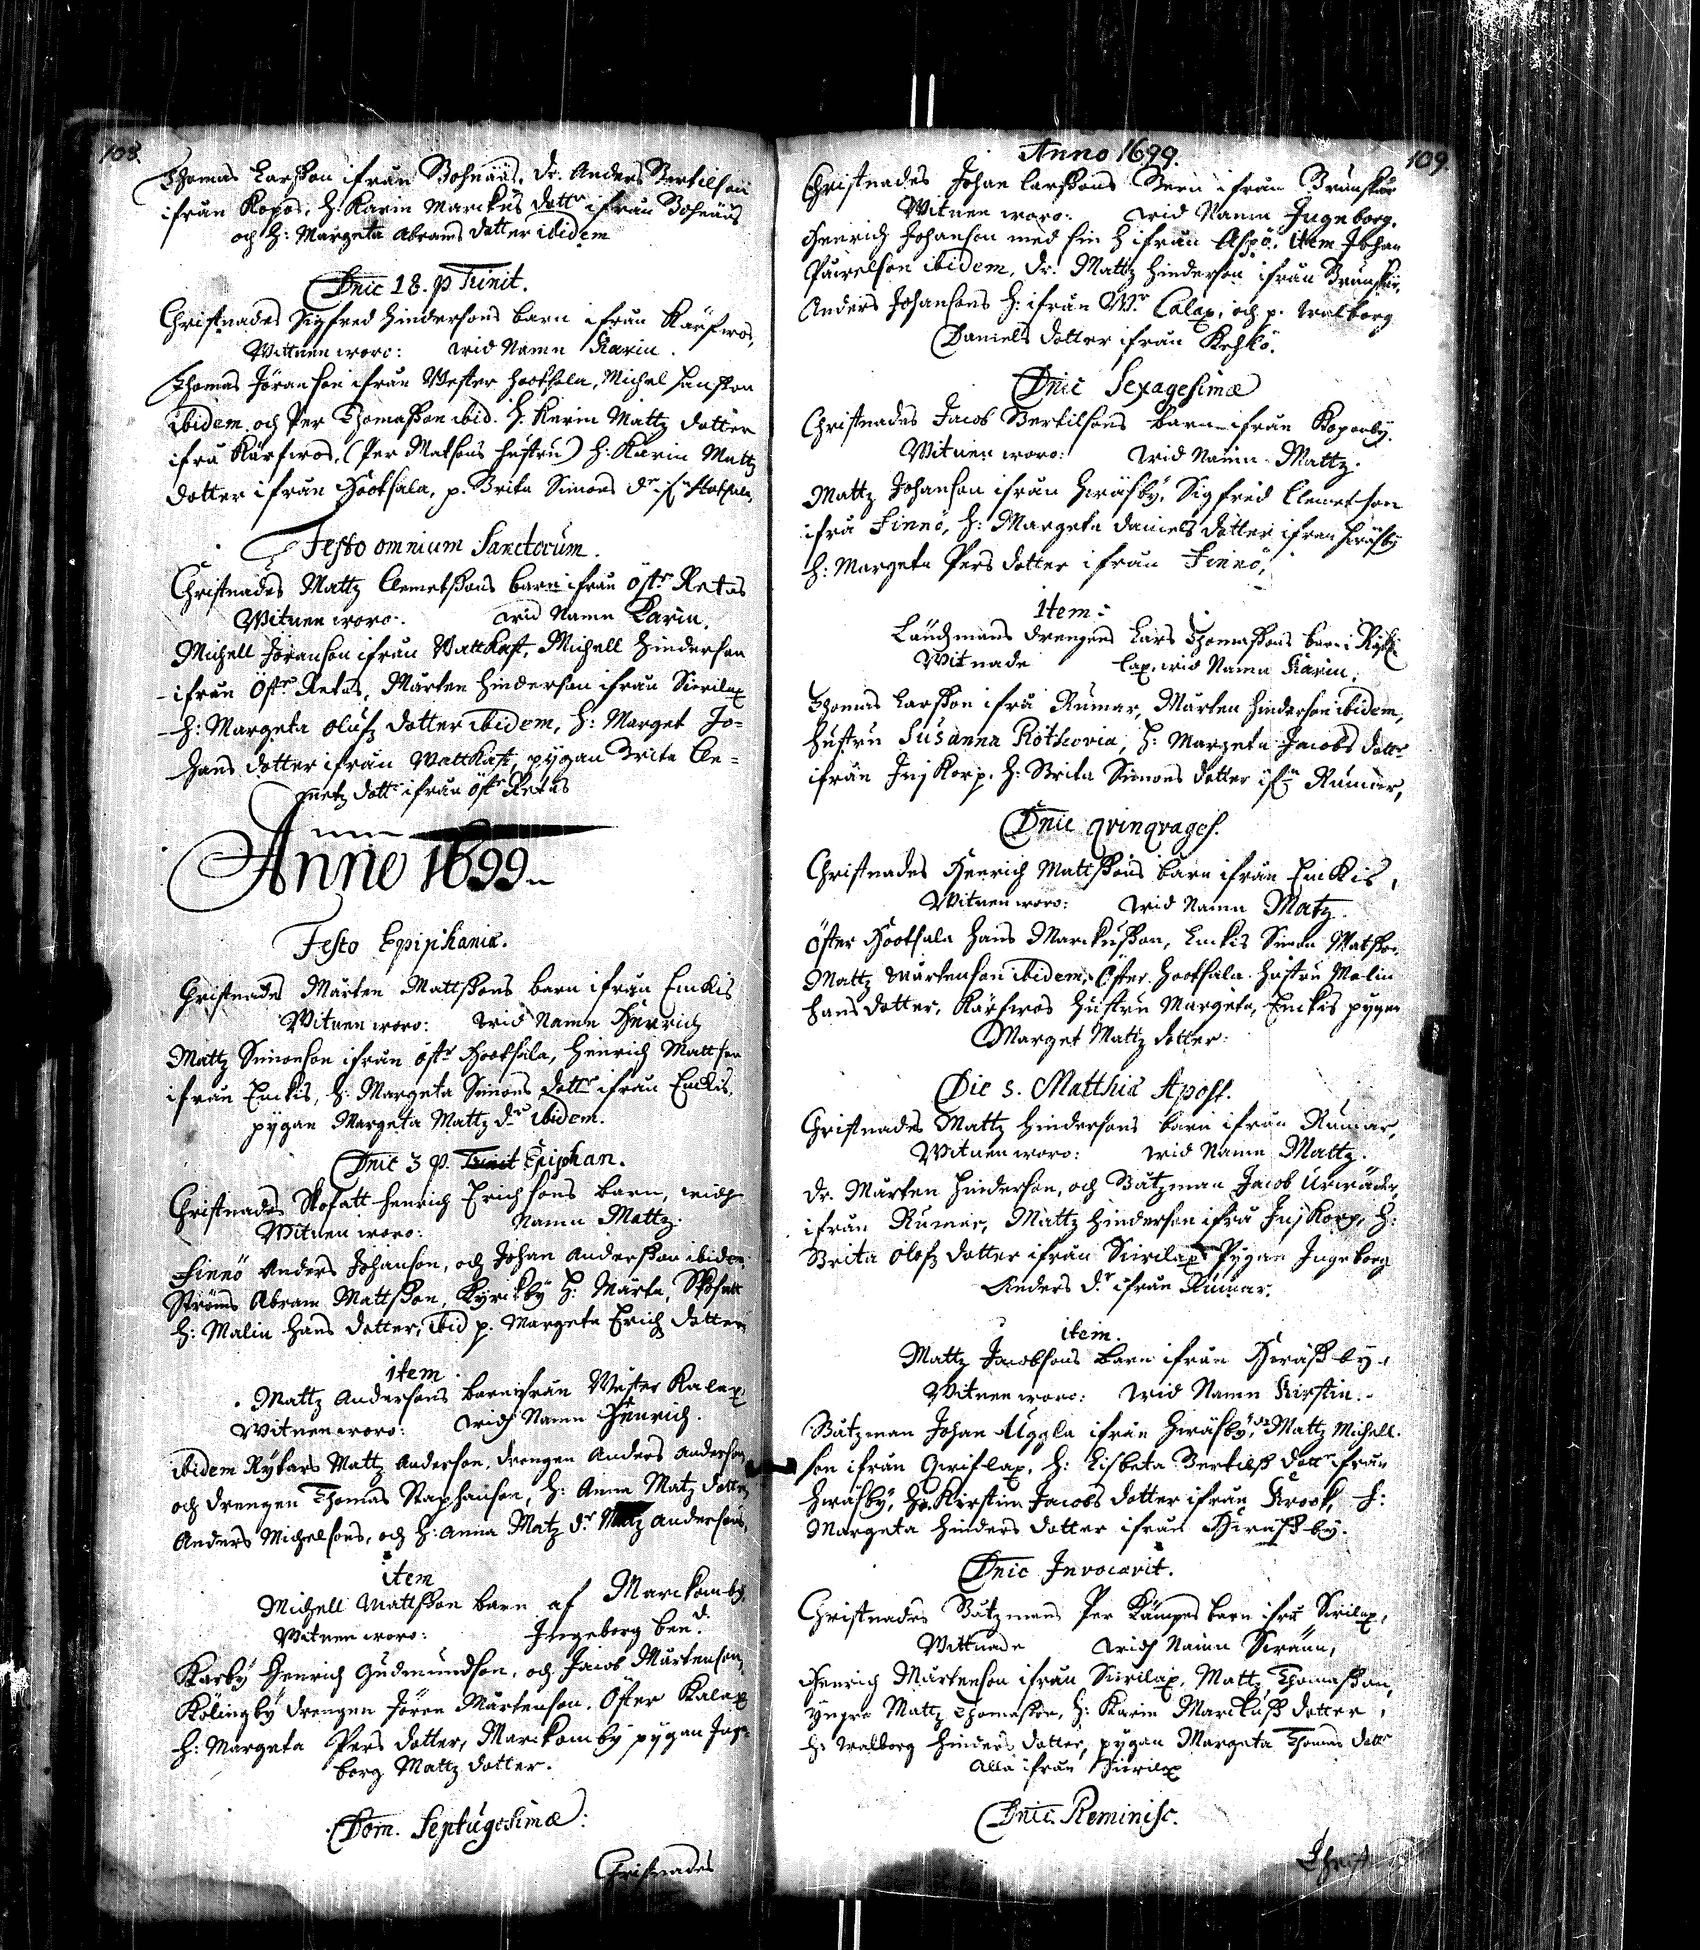 108.
Thomas Larsson ifrån Bohnääs, Dr. Anders Bertilson
ifrån Kopos, H. Karin Marckus dottr ifrån Bohnääs
och H: Margeta Abrams dotter ibidem
Dnic 18. p Trinit.
Christnades Sigfred Hindersons barn ifrån Kärfwos,
Wittnen woro: wid Namn Karin.
Thomas Jöranson ifrån Wester Hootsala, Michel Hansson
ibidem och Per Thomasson ibid. H. Karin Mattz dotter
ifrå Kärfwos, (Per Matsons hustru) H: Karin Mattz
dotter ifrån Hootsala, p. Brita Simons dr if. Hotsala,
Festo omnium Sanctorum.
Christnades Mattz Clemetssons barn ifrån Östr Retas
Witnen woro. wid Namn Karin.
Michell Jöranson ifrån Wattkast, Michell Hinderson
ifrån Östr Retas, Mårten Hinderson ifrån Siirilax
H: Margeta Olufz dotter ibidem, H: Marget Jo-
hans dotter ifrån Wattkast, pygan Brita Cle-
metz dottr ifrån Östr Retas
Anno 1699
Festo Epiphaniæ.
Christnades Mårten Mattssons barn ifrån Emkis
Witnen woro: wid Namn Henrich
Mattz Simonson ifrån östr Hootsala, Hinrich Mattson
ifrån Emkis, H: Margeta Simons dottr ifrån Emkis,
pygan Margeta Mattz dr ibidem.
Dnic 3 p. Trinit Epiphan.
Christnades Skofatt Henrich Erichsons barn, widh
Witnen woro: Namn Mattz.
Finnö Anders Johanson, och Johan Andersson ibidem
Ströms Abram Mattsson, Kyrckby H: Marta, Skofatt
H: Malin Hans dotter, ibid p. Margeta Erich dotter
item
Mattz Andersons barn ifrån Wester Kalax
Witnen woro: widh Namn Henrich.
ibidem Rykars Mattz Anderson, drengen Anders Anderson,
och drengen Thomas Staphanson, H: Anna Matz dotter,
Anders Michelsons, och H: Anna Matz dr Matz Andersons,
item
Michell Mattsson barn af Marckomby,
Witnen woro: Ingeborg ben d.
Karby Henrich Gudmundson, och Jacob Mårtenson,
Kölingby drengen Jören Mårtenson, Öster Kalax
H: Margeta Pers dotter, Marckomby pygan Inge-
borg Mattz dotter.
Dom. Septugesimæ:
Christnades
Anno 1699.
109.
Christnades Johan Larssons Barn ifrån Brunskär
Witnen woro: wid Namn Ingeborg.
Henrich Johanson med sin H ifrån Aspö. item Johan
Påwelson ibidem, Dr. Mattz Hinderson ifrån Brunskär,
Anders Johansons H: ifrån Wr Calax, och p. Walborg
Daniels dotter ifrån
Dnic Sexagesimæ
Christnades Jacob Bertilsons barn ifrån Kopoby.
Witnen woro: wid Namn Mattz.
Mattz Johanson ifrån Hwäsby, Sigfred Clemetson
ifrå Finnö, H: Margeta Daniels dotter ifrån Hwäsby
H: Margeta Pers dotter ifrån Finnö,
item:
Ländzmans drengens Lars Thomassons barn i
Witnade lax, wid Namn Karin,
Thomas Larsson ifrå Rumar, Mårten Hinderson ibidem,
Hustru Susanna Rothovia, H: Margeta Jacobs dottr
ifrån Jnj Korp. H: Brita Simons dotter ifrn Rumar,
Dnic qvinqvages.
Christnades Henrich Mattssons barn ifrån Emkis,
Witnen woro: wid Namn Matz.
Öster Hootsala Hans Marckusson, Emkis Simon Matsson,
Mattz Mårtenson ibidem, Öster Hootsala hustru Malin
Hans dotter, Kärfwos Hustru Margeta, Emkis pygan
Marget Mattz dotter.
Die s. Matthiæ Apost.
Christnades Mattz Hindersons barn ifrån Rumar,
Witnen woro: wid Namn Mattz.
Dr. Mårten Hinderson, och Båtzman Jacob
ifrån Rumar, Mattz Hinderson ifrå Jnj Korp, H:
Brita Olofz dotter ifrån Siirilax Pygan Ingeborg
Anders dr ifrån Rumar.
item.
Mattz Jacobsons barn ifrån Hwäss by,
Witnen woro: wid Namn Kirstin.
Båtzman Johan Uggla ifrån Hwäsby, dr Mattz Michell-
son ifrån Grislax, H: Lisbeta Bertilss dottr ifrån
Hwäsby, H. Kirstin Jacobs dotter ifrån Krook, H:
Margeta Hinders dotter ifrån Hwäss by.
Dnic Invocavit.
Christnades Båtzmans Per Kämpes barn ifrå Siirilax,
Wittnade widh Namn
Henrich Mårtenson ifrån Siirilax, Mattz Thomasson,
Yngre Mattz Thomasson, H: Karin Marckuss dotter,
H: Walborg Hinders dotter, pygan Margeta Thomas dottr
Alla ifrån Siirilax
Dnic. Reminisc.
Christ